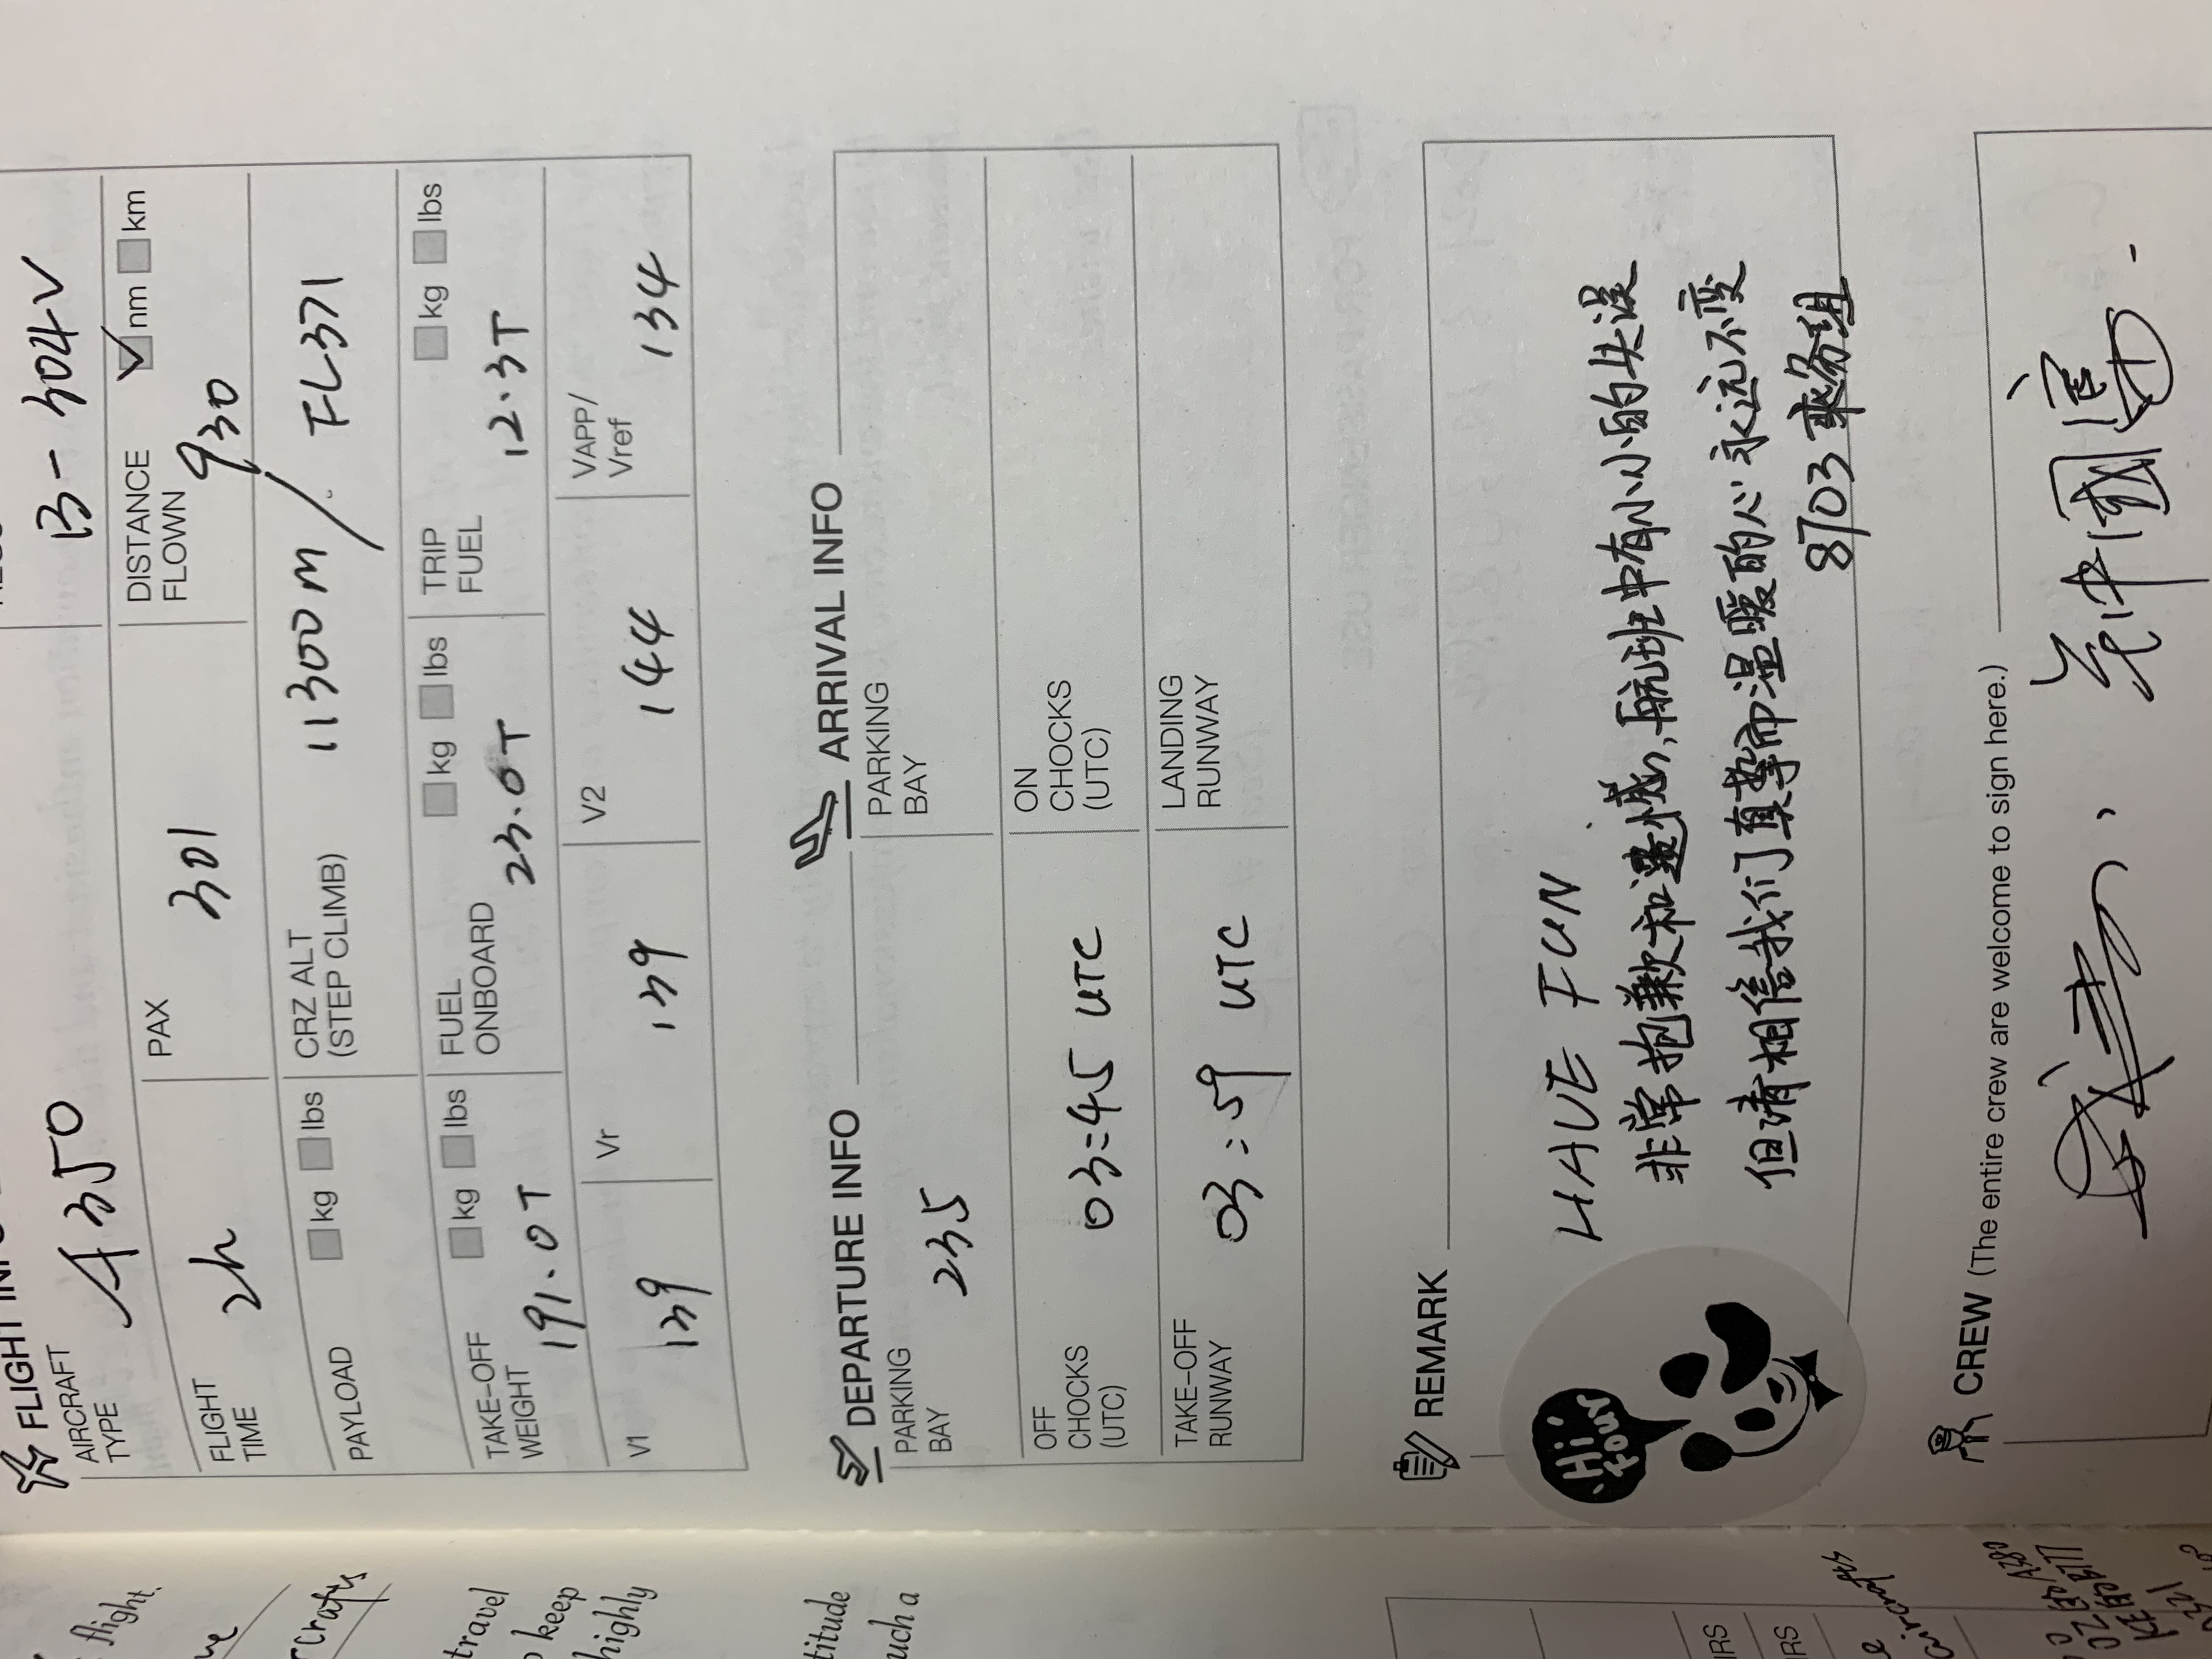 FLIGHT INFO
AIRCRAFT TYPE A350
B-304V
FLIGHT TIME 2h
PAX 301
DISTANCE FLOWN nm km
930
PAYLOAD kg lbs
CRZ ALT (STEP CLIMB) 11300m / FL371
TAKE-OFF WEIGHT kg lbs
191.0T
FUEL ONBOARD kg lbs
23.0T
TRIP FUEL kg lbs
12.3T
V1 139
Vr 139
V2 144
VAPP/Vref 134
DEPARTURE INFO
PARKING BAY 235
OFF CHOCKS (UTC) 03:45 UTC
TAKE-OFF RUNWAY 03:59 UTC
ARRIVAL INFO
PARKING BAY
ON CHOCKS (UTC)
LANDING RUNWAY
REMARK
HAVE FUN
非常抱歉和遗憾,航班中有小小的失误
但请相信我们真挚而温暖的心永远不变
8703乘务组
Hi
CREW (The entire crew are welcome to sign here.)
flight.
travel
keep
highly
titude
uch a
aircrafts